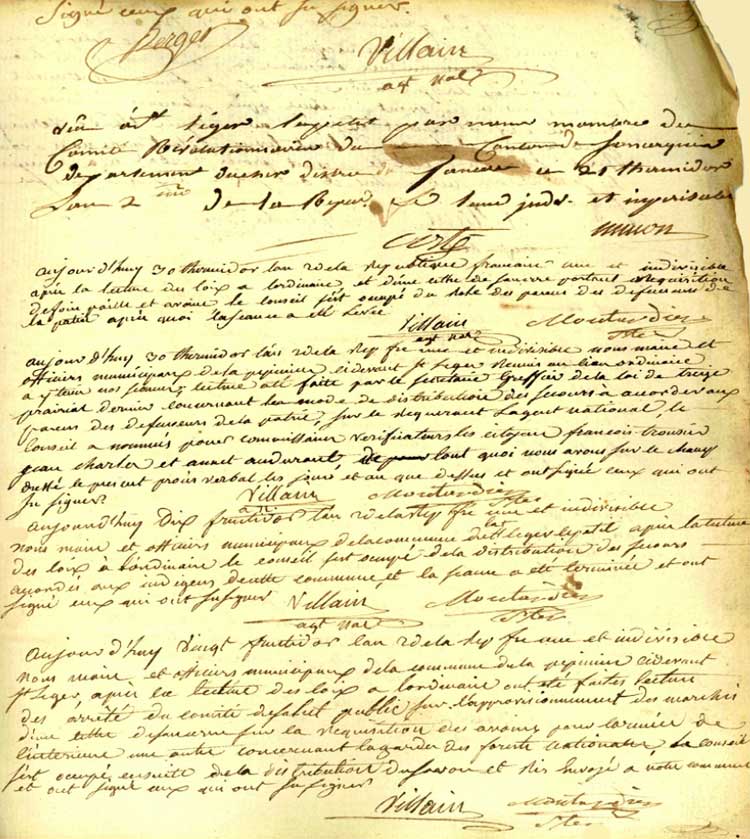 Signé ceux qui ont su signer.
Berger
Villain
agt nal
vû à st léger le petit par nous membre du
Comité Révolutionnaire du Canton de Sancergues
departement du cher district de Sancerre ce 21 thermidor
Lan 2 me de la Repu. f. et imperissable
aujourd'huy 30 thermidor lan 2 de la republique francaise une et indivisible
après la lecture des loix a lordinaire et dune lettre de sancerre portant requisition
de foin paille et avoine le conseil sest occupé du role des parens des defenseurs de
la patrie après quoi la seance a ete levée
Villain
agt nal
aujourd'huy 30 thermidor lan 2 de la rep fse une et indivisible nous maire et
officiers municipaux de la pepiniere cidevant st leger reunis au lieu ordinaire
a y tenir nos seances lecture a été faite par le secretaire greffier de la loi de treize
prairial dernier concernant la mode de distribution des secours a accorder aux
parens des defenseurs de la patrie, sur le requerant lagent national, le
Conseil a nommés pour commissaires verificateurs les citoyens francois trousier
jean charles et annet audurant, de tout quoi nous avons sur le champ
dressé le present procès verbal les jours et an que dessus et ont signé ceux qui ont
su signer
Villain
aujourdhuy dix fructidor lan 2 de la rep fse une et indivisible
nous maire et officiers municipaux de la commune de st leger le petit après la lecture
des loix a lordinaire le conseil sest occupé de la distribution des secours
accordés aux indigens de cette commune et la seance a eté terminée et ont
signé ceux qui ont su signer
Villain
agt nal
aujourd'huy vingt fructidor lan 2 de la rep fse une et indivisible
nous maire et officiers municipaux de la commune de la pepiniere cidevant
st Leger, après la lecture des loix a lordinaire ont été faites lecture
des arrêté du comité de salut public sur l'approvisionnement des marchés
d'une lettre de sancerre sur la requisition des avoines pour larmée de
l'interieure une autre concernant la garde des forets nationales, le conseil
sest occupé ensuite de la distribution du savon et ris envoyé a notre commune
et ont signé ceux qui ont su signer
Villain